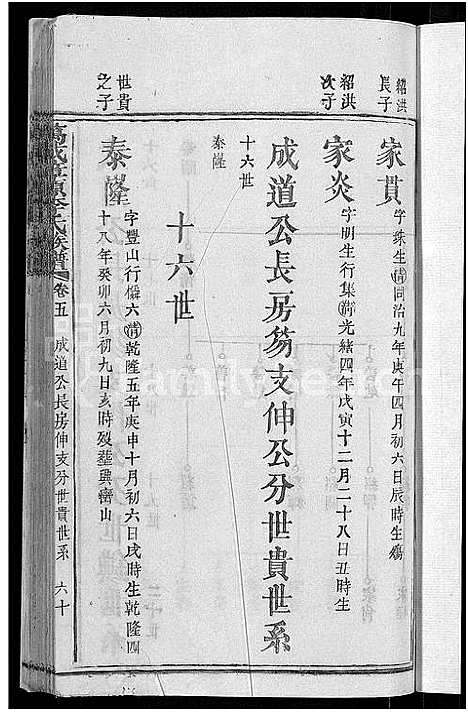 紹洪長子
家貫
字珠生清同治九年庚午四月初六日辰時生殤
紹洪次子
家炎
字明生行集清光緒四年戊寅十二月二十八日丑時生
成道公長房芴支伸公分世貴世系
十六世
泰隆
十六世
世貴之子
泰隆
字豐山行僯六清乾隆五年庚申十月初六日戌時生乾隆四
十八年癸卯六月初九日亥時歿塟
山
氏族譜
卷五
成道公長房伸支分世貴世系
六十